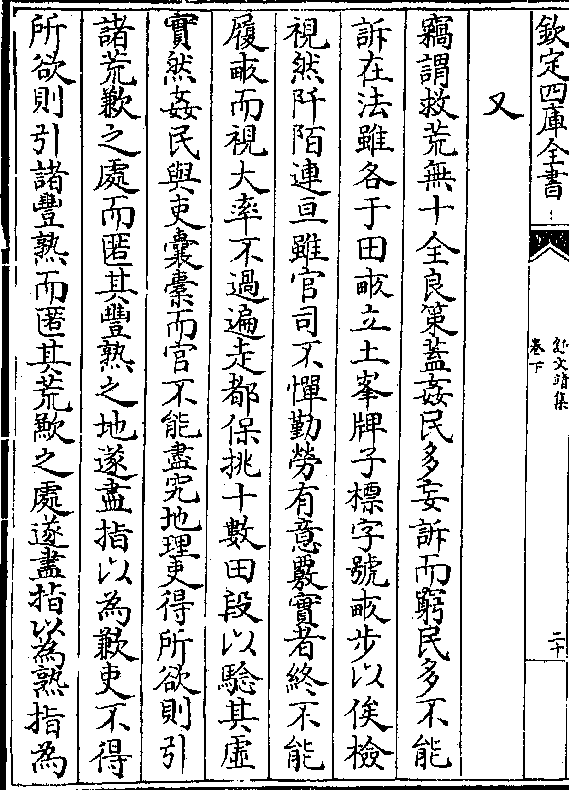 欽定四庫全書
舒文靖集
卷下
二十
又
竊謂救荒無十全良策蓋姦民多妄訴而窮民多不能
訴在法雖各于田畝立土峯牌子標字號畝步以俟檢
視然阡陌連亘雖官司不憚勤勞有意覈實者終不能
履畝而視大率不過遍走都保挑十數田段以驗其虛
實然姦民與吏囊橐而官不能盡究地理吏得所欲則引
諸荒歉之處而匿其豐熟之地遂盡指以為歉吏不得
所欲則引諸豐熟而匿其荒歉之處遂盡指以為熟指為